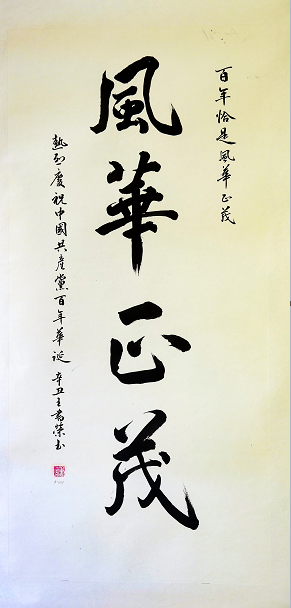 百年恰是風華正茂
風華正茂
熱烈慶祝中國共產黨百年華誕 辛丑王書榮书